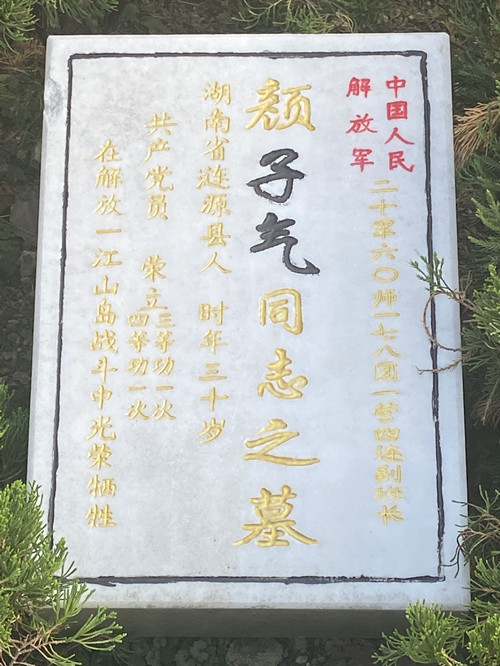 中国人民
解放军
二十军六〇师一七八团一营四连副班长
颜子气同志之墓
湖南省涟源县人 时年三十岁
共产党员 荣立三等功一次
四等功一次
在解放一江山岛战斗中光荣牺牲